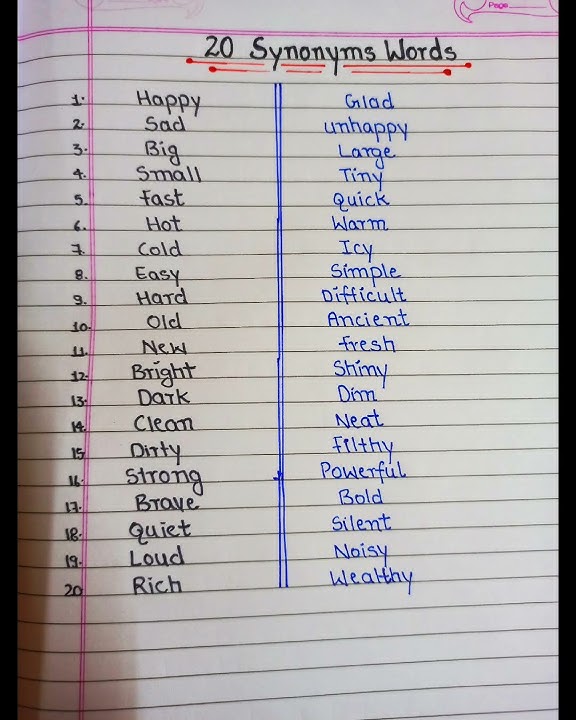 Page
20 Synonyms Words
1. Happy Glad
2. Sad unhappy
3. Big Large
4. Small Tiny
5. Fast Quick
6. Hot Warm
7. Cold Icy
8. Easy Simple
9. Hard Difficult
10. Old Ancient
11. New fresh
12. Bright Shiny
13. Dark Dim
14. Clean Neat
15. Dirty Filthy
16. Strong Powerful
17. Brave Bold
18. Quiet Silent
19. Loud Noisy
20 Rich Wealthy